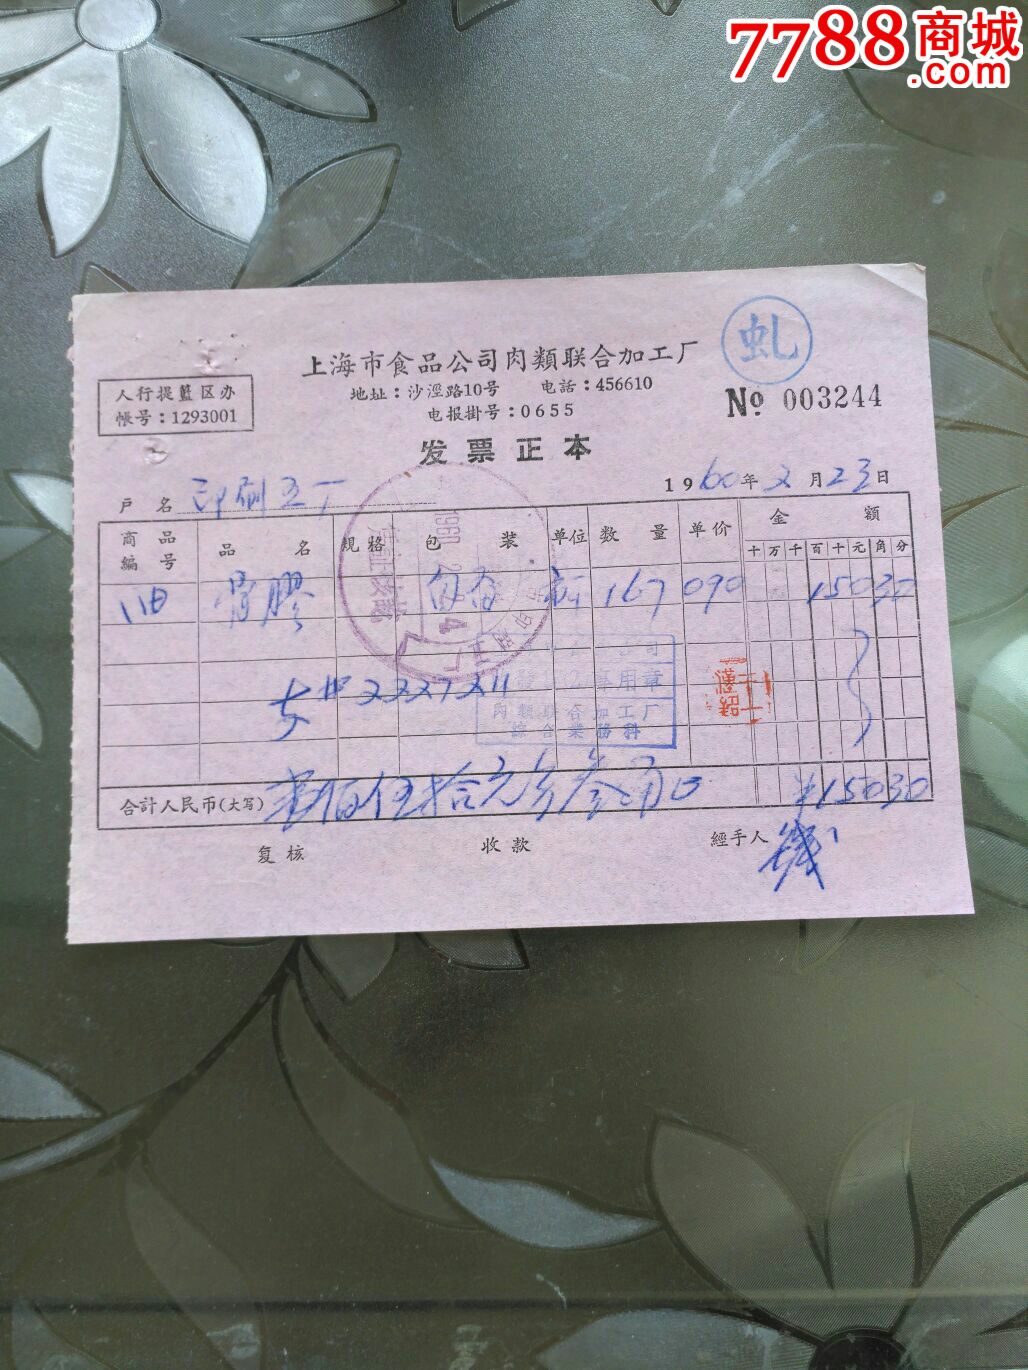 7788商城
.com
虬
上海市食品公司肉類联合加工厂
地址：沙涇路10号 电話：456610
电报掛号：0655
人行提籃区办
帳号：1293001
№ 003244
发票正本
1960年2月23日
户名 印刷五厂
商品编号 品名 規格 包装 单位 数量 单价 金额
十 万 千 百 十 元 角 分
骨膠 167 090 15030
1960
2227211
专用章
肉類联合加工厂
綜合業務科
合計人民币(大写) 壹佰伍拾元另叁角 ¥15030
复核 收款 經手人